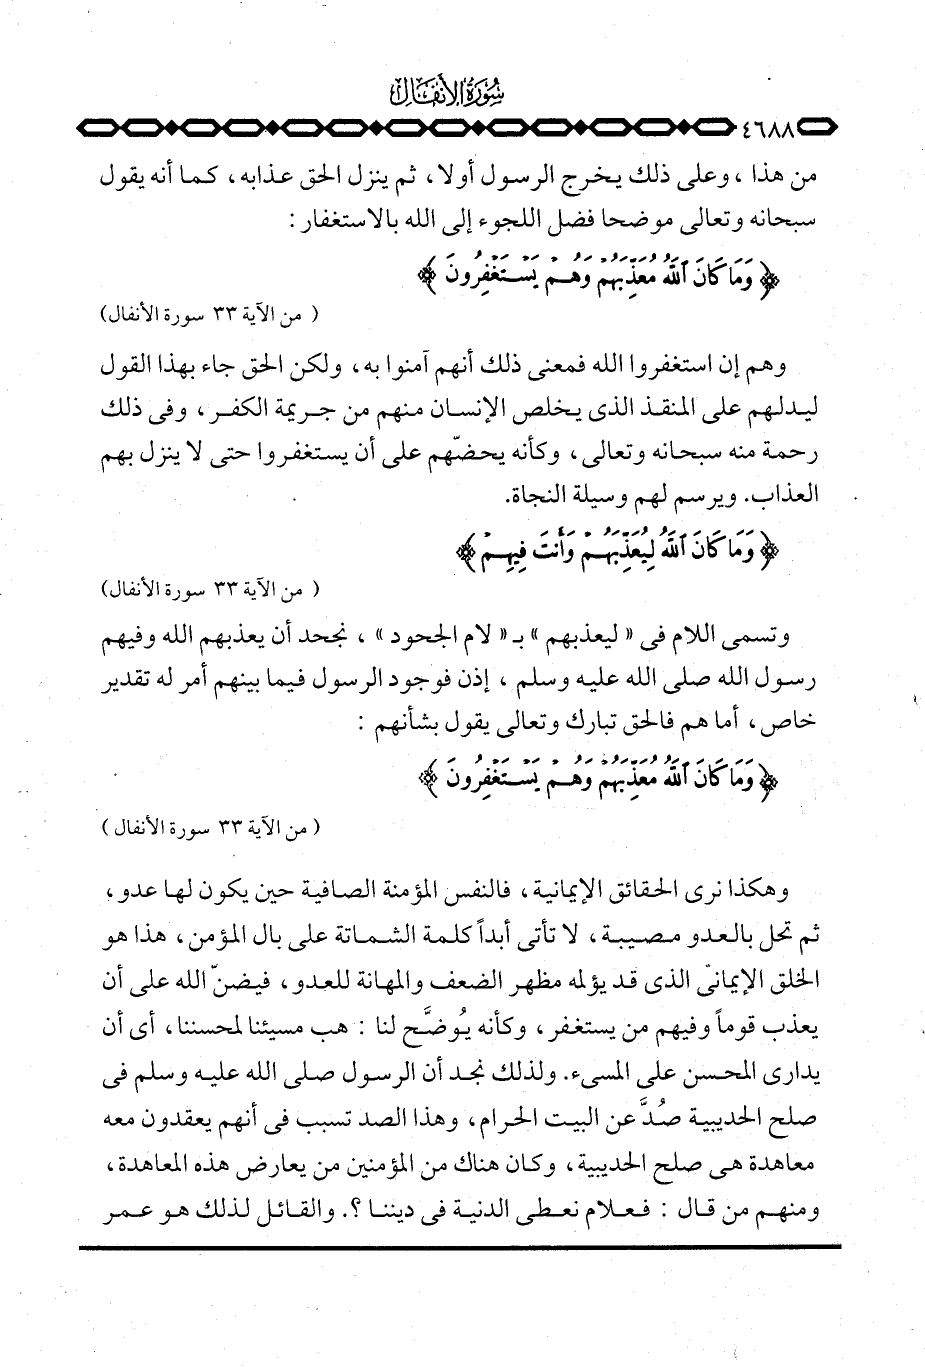 سورة الأنفال
٤٦٨٨
من هذا ، وعلى ذلك يخرج الرسول أولا، ثم ينزل الحق عذابه، كما أنه يقول
سبحانه وتعالى موضحا فضل اللجوء إلى الله بالاستغفار :
﴿ وَمَا كَانَ ٱللَّهُ مُعَذِّبَهُمْ وَهُمْ يَسْتَغْفِرُونَ ﴾
( من الآية ٣٣ سورة الأنفال)
وهم إن استغفروا الله فمعنى ذلك أنهم آمنوا به، ولكن الحق جاء بهذا القول
ليدلهم على المنقذ الذى يخلص الإنسان منهم من جريمة الكفر، وفى ذلك
رحمة منه سبحانه وتعالى، وكأنه يحضّهم على أن يستغفروا حتى لا ينزل بهم
العذاب. ويرسم لهم وسيلة النجاة.
﴿ وَمَا كَانَ ٱللَّهُ لِيُعَذِّبَهُمْ وَأَنتَ فِيهِمْ ﴾
( من الآية ٣٣ سورة الأنفال)
وتسمى اللام فى « ليعذبهم » بـ « لام الجحود » ، نجحد أن يعذبهم الله وفيهم
رسول الله صلى الله عليه وسلم ، إذن فوجود الرسول فيما بينهم أمر له تقدير
خاص، أما هم فالحق تبارك وتعالى يقول بشأنهم :
﴿ وَمَا كَانَ ٱللَّهُ مُعَذِّبَهُمْ وَهُمْ يَسْتَغْفِرُونَ ﴾
( من الآية ٣٣ سورة الأنفال )
وهكذا نرى الحقائق الإيمانية، فالنفس المؤمنة الصافية حين يكون لها عدو،
ثم تحل بالعدو مصيبة، لا تأتى أبداً كلمة الشماتة على بال المؤمن، هذا هو
الخلق الإيمانىّ الذى قد يؤلمه مظهر الضعف والمهانة للعدو، فيضنّ الله على أن
يعذب قوماً وفيهم من يستغفر، وكأنه يُوضَّح لنا : هب مسيئنا لمحسننا، أى أن
يدارى المحسن على المسىء. ولذلك نجد أن الرسول صلى الله عليه وسلم فى
صلح الحديبية صُدَّ عن البيت الحرام، وهذا الصد تسبب فى أنهم يعقدون معه
معاهدة هى صلح الحديبية، وكان هناك من المؤمنين من يعارض هذه المعاهدة،
ومنهم من قال : فعلام نعطى الدنية فى ديننا ؟. والقائل لذلك هو عمر